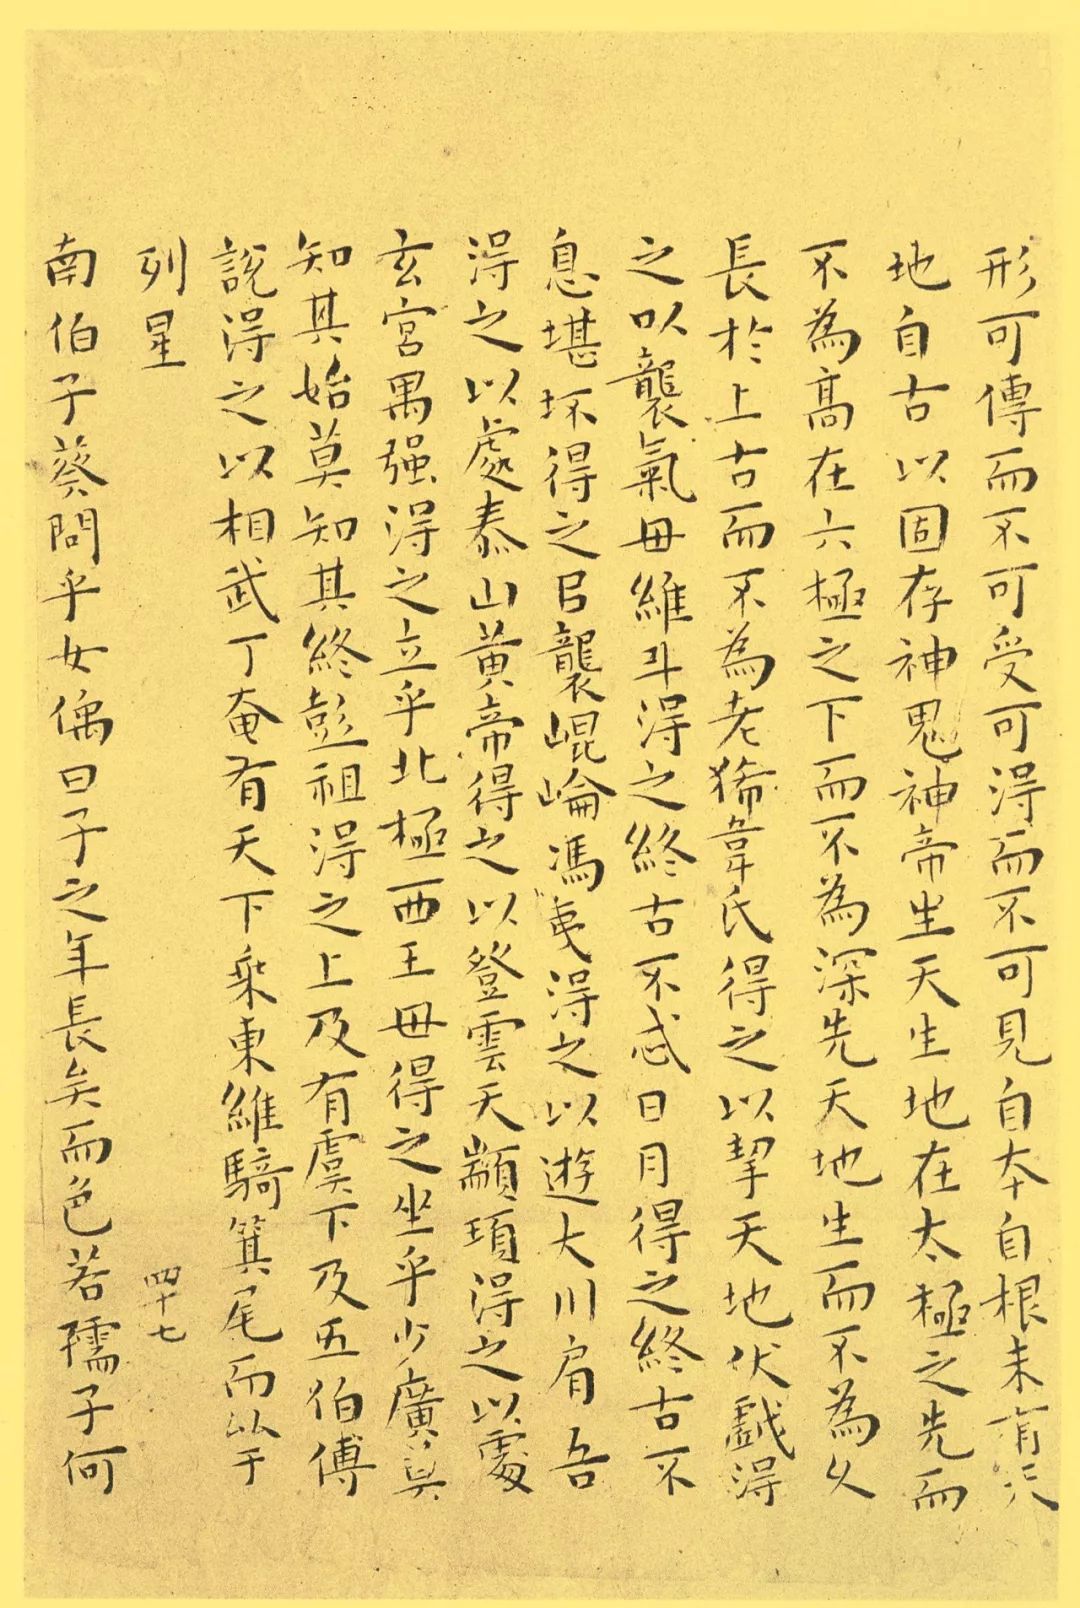 形可傳而不可受可得而不可見自本自根未有天
地自古以固存神鬼神帝生天生地在太極之先而
不為高在六極之下而不為深先天地生而不為久
長於上古而不為老狶韋氏得之以挈天地伏戲得
之以襲氣毋維斗得之終古不忒日月得之終古不
息堪坏得之以襲崐崘馮夷得之以遊大川肩吾
得之以處泰山黃帝得之以登雲天顓頊得之以處
玄宮禺强得之立乎北極西王毋得之坐乎少廣莫
知其始莫知其終彭祖得之上及有虞下及五伯傅
說得之以相武丁奄有天下乘東維騎箕尾而比于
列星
四十七
南伯子葵問乎女偊曰子之年長矣而色若孺子何